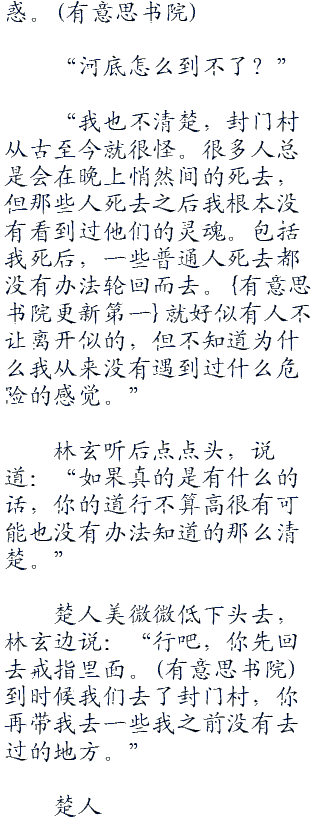 惑。(有意思书院)
“河底怎么到不了？”
“我也不清楚，封门村
从古至今就很怪。很多人总
是会在晚上悄然间的死去，
但那些人死去之后我根本没
有看到过他们的灵魂。包括
我死后，一些普通人死去都
没有办法轮回而去。{有意思
书院更新第一}就好似有人不
让离开似的，但不知道为什
么我从来没有遇到过什么危
险的感觉。”
林玄听后点点头，说
道：“如果真的是有什么的
话，你的道行不算高很有可
能也没有办法知道的那么清
楚。”
楚人美微微低下头去，
林玄边说：“行吧，你先回
去戒指里面。(有意思书院)
到时候我们去了封门村，你
再带我去一些我之前没有去
过的地方。”
楚人